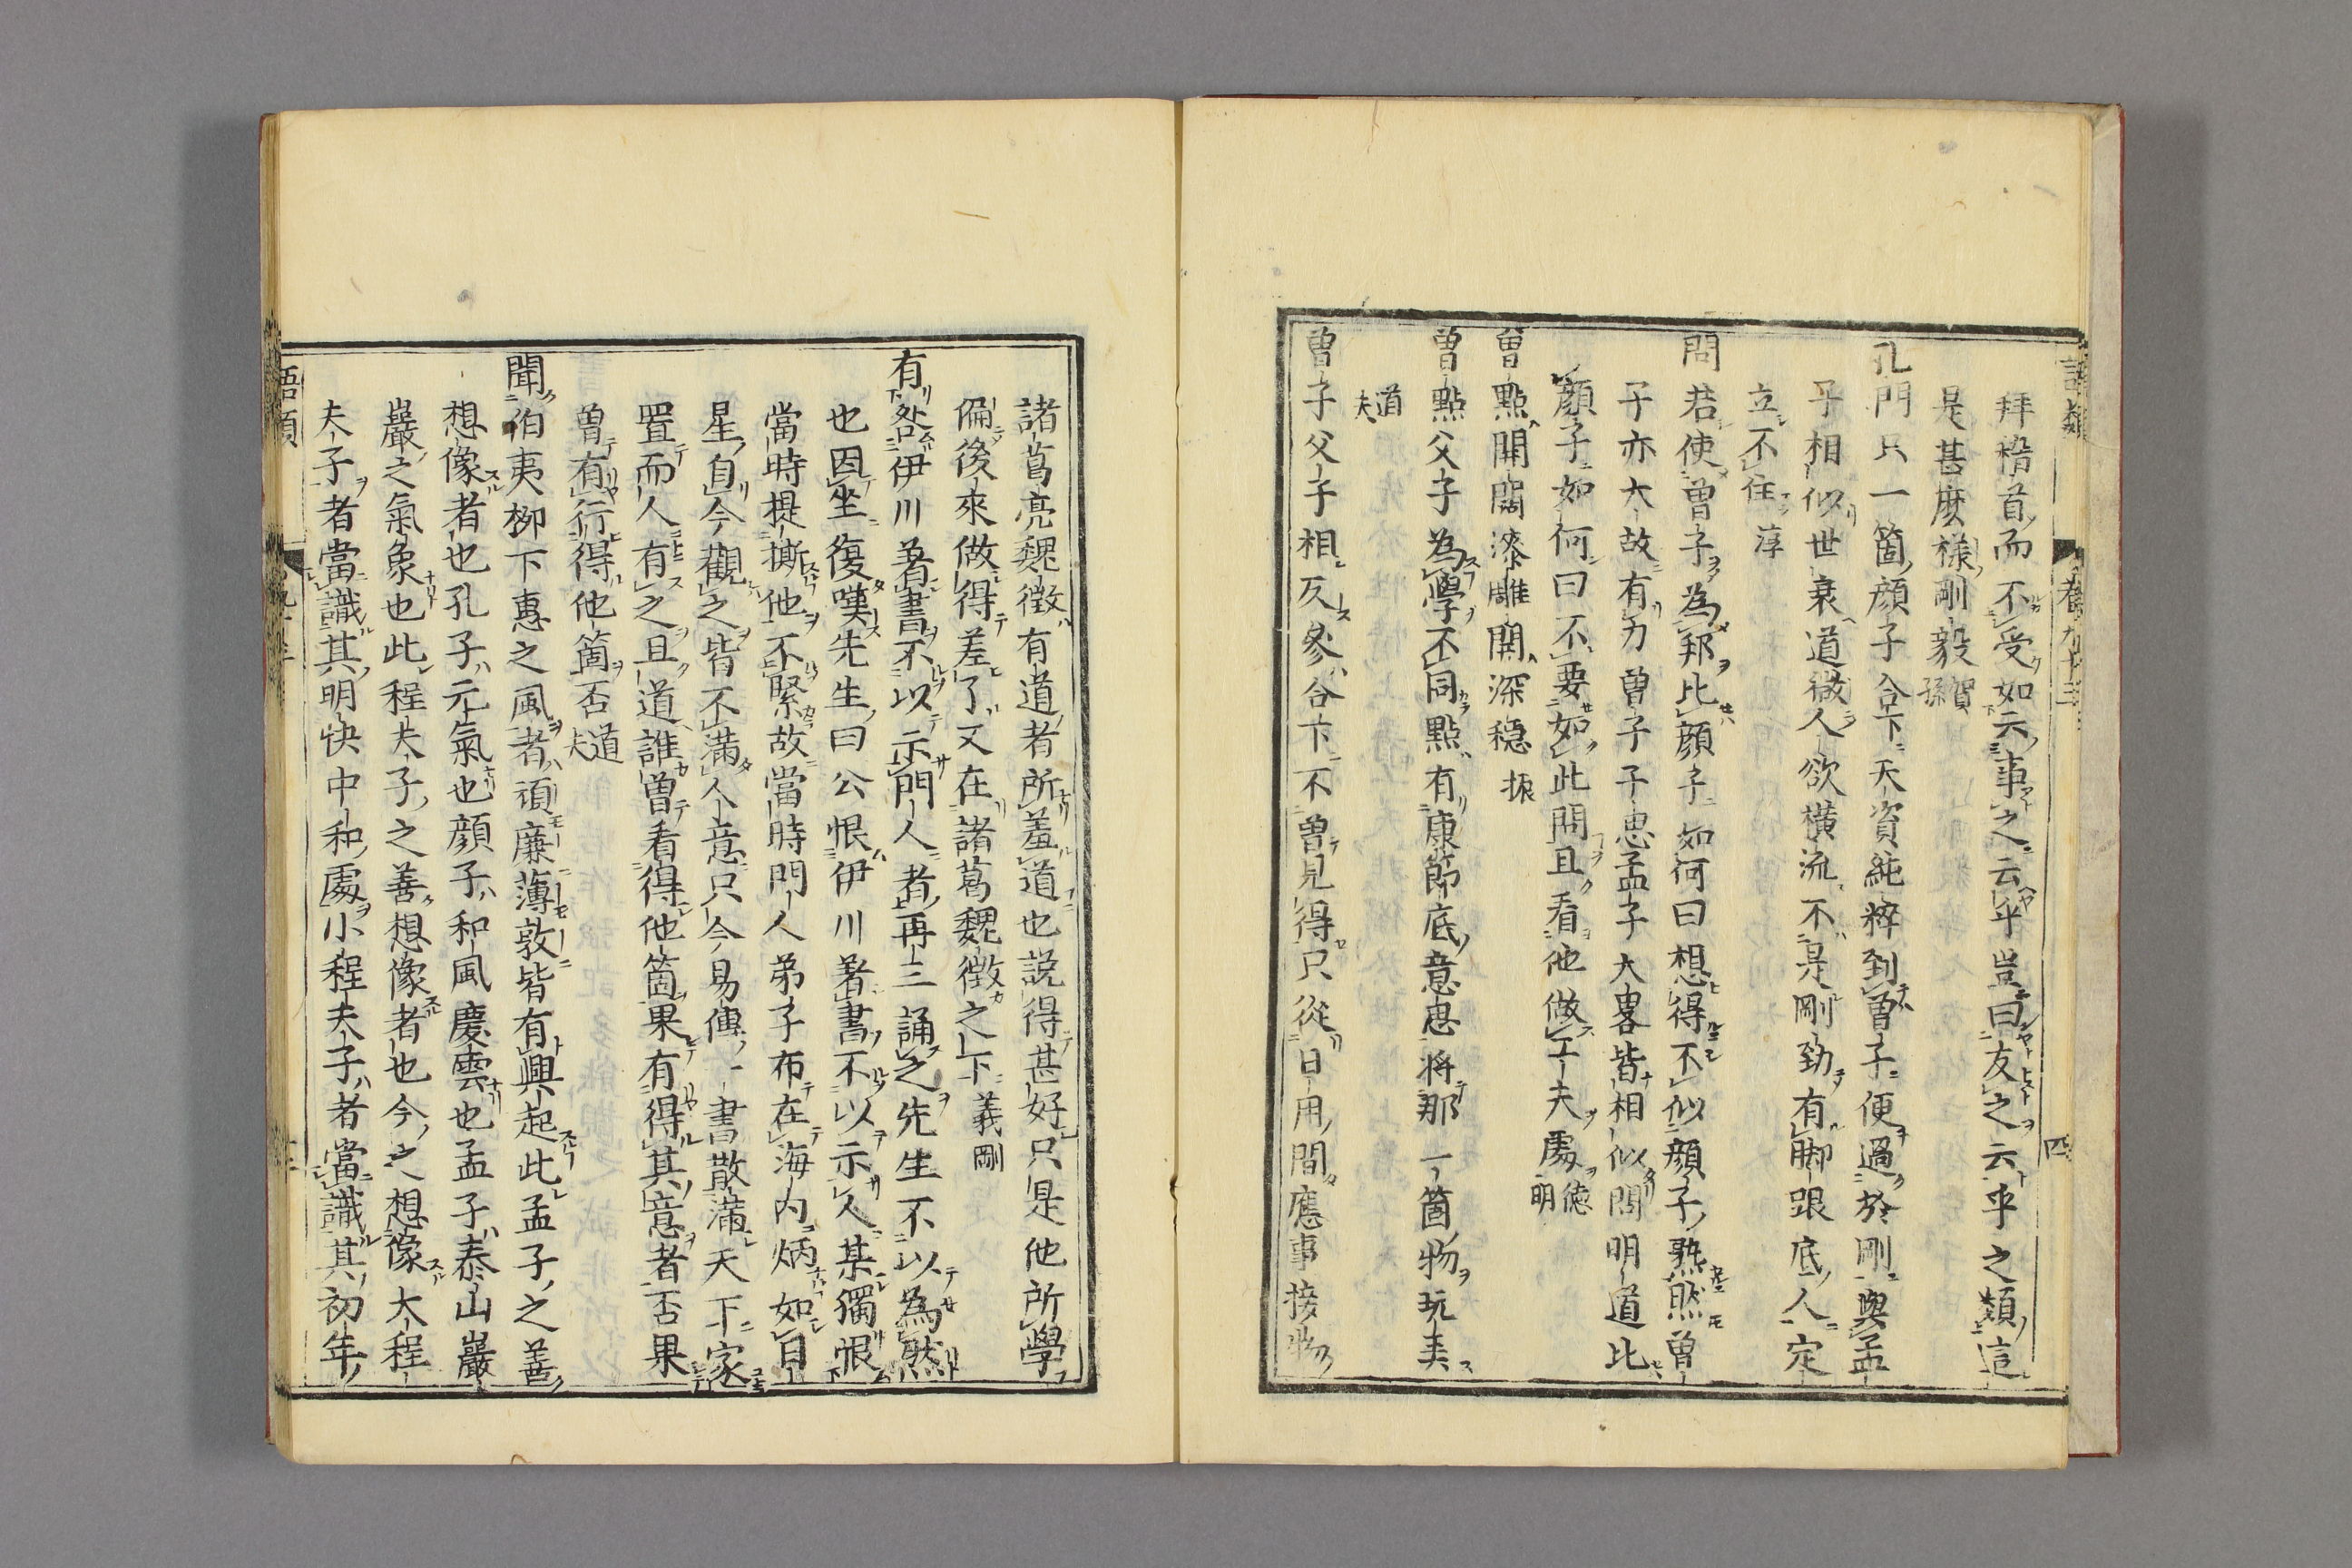 語類 卷九十三 四
拜稽首而不受如云事之云乎豈曰友之云乎之類這
是甚麽樣剛毅賀孫
孔門只一箇顔子合下天資純粹到曾子便過於剛與孟
子相似世衰道微人欲横流不是剛勁有脚跟底人定
立不住淳
問若使曾子為邦比顔子如何曰想得不似顔子熟然曾
子亦大故有力曾子子思孟子大畧皆相似問明道比
顔子如何曰不要如此問且看他做工夫處德明
曾點開闊漆雕開深穏振
曾點父子為學不同點有康節底意思將那一箇物玩弄
道夫
曾子父子相反參合下不曾見得只從日用間應事接物
諸葛亮魏徴有道者所羞道也説得甚好只是他所學
偏後來做得差了又在諸葛魏徴之下義剛
有咎伊川著書不以示門人者再三誦之先生不以為然
也因坐復嘆先生曰公恨伊川著書不以示人某獨恨
當時提撕他不緊故當時門人弟子布在海内炳如日
星自今觀之皆不滿人意只今易傳一書散滿天下家
置而人有之且道誰曾看得他箇果有得其意者否果
曾有行得他箇否道夫
聞伯夷柳下惠之風者頑廉薄敦皆有興起此孟子之善
想像者也孔子元氣也顔子和風慶雲也孟子泰山巖
巖之氣象也此程夫子之善想像者也今之想像大程
夫子者當識其明快中和處小程夫子者當識其初年
語類